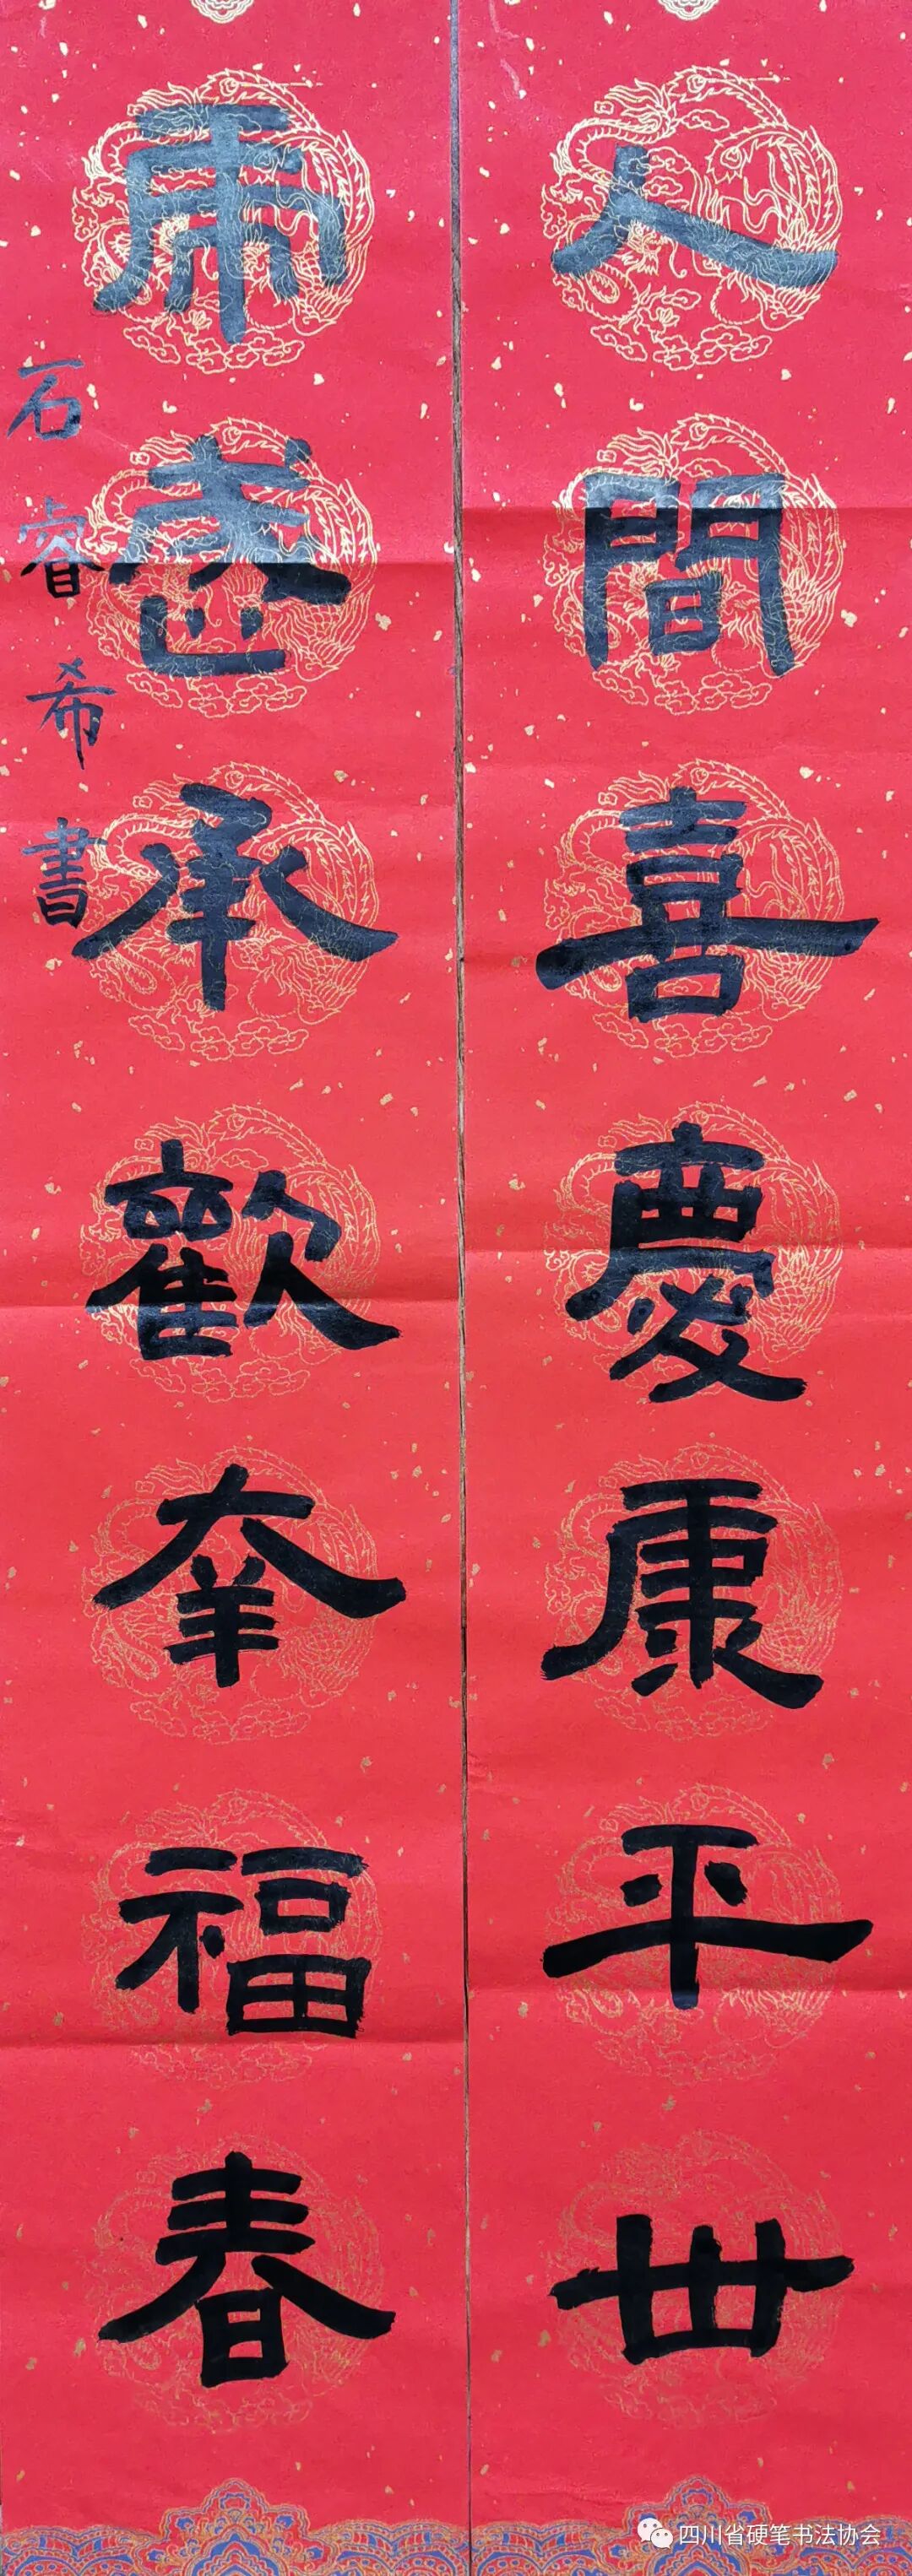 人間喜慶康平世
虎歲承歡幸福春
石睿希書
四川省硬笔书法协会